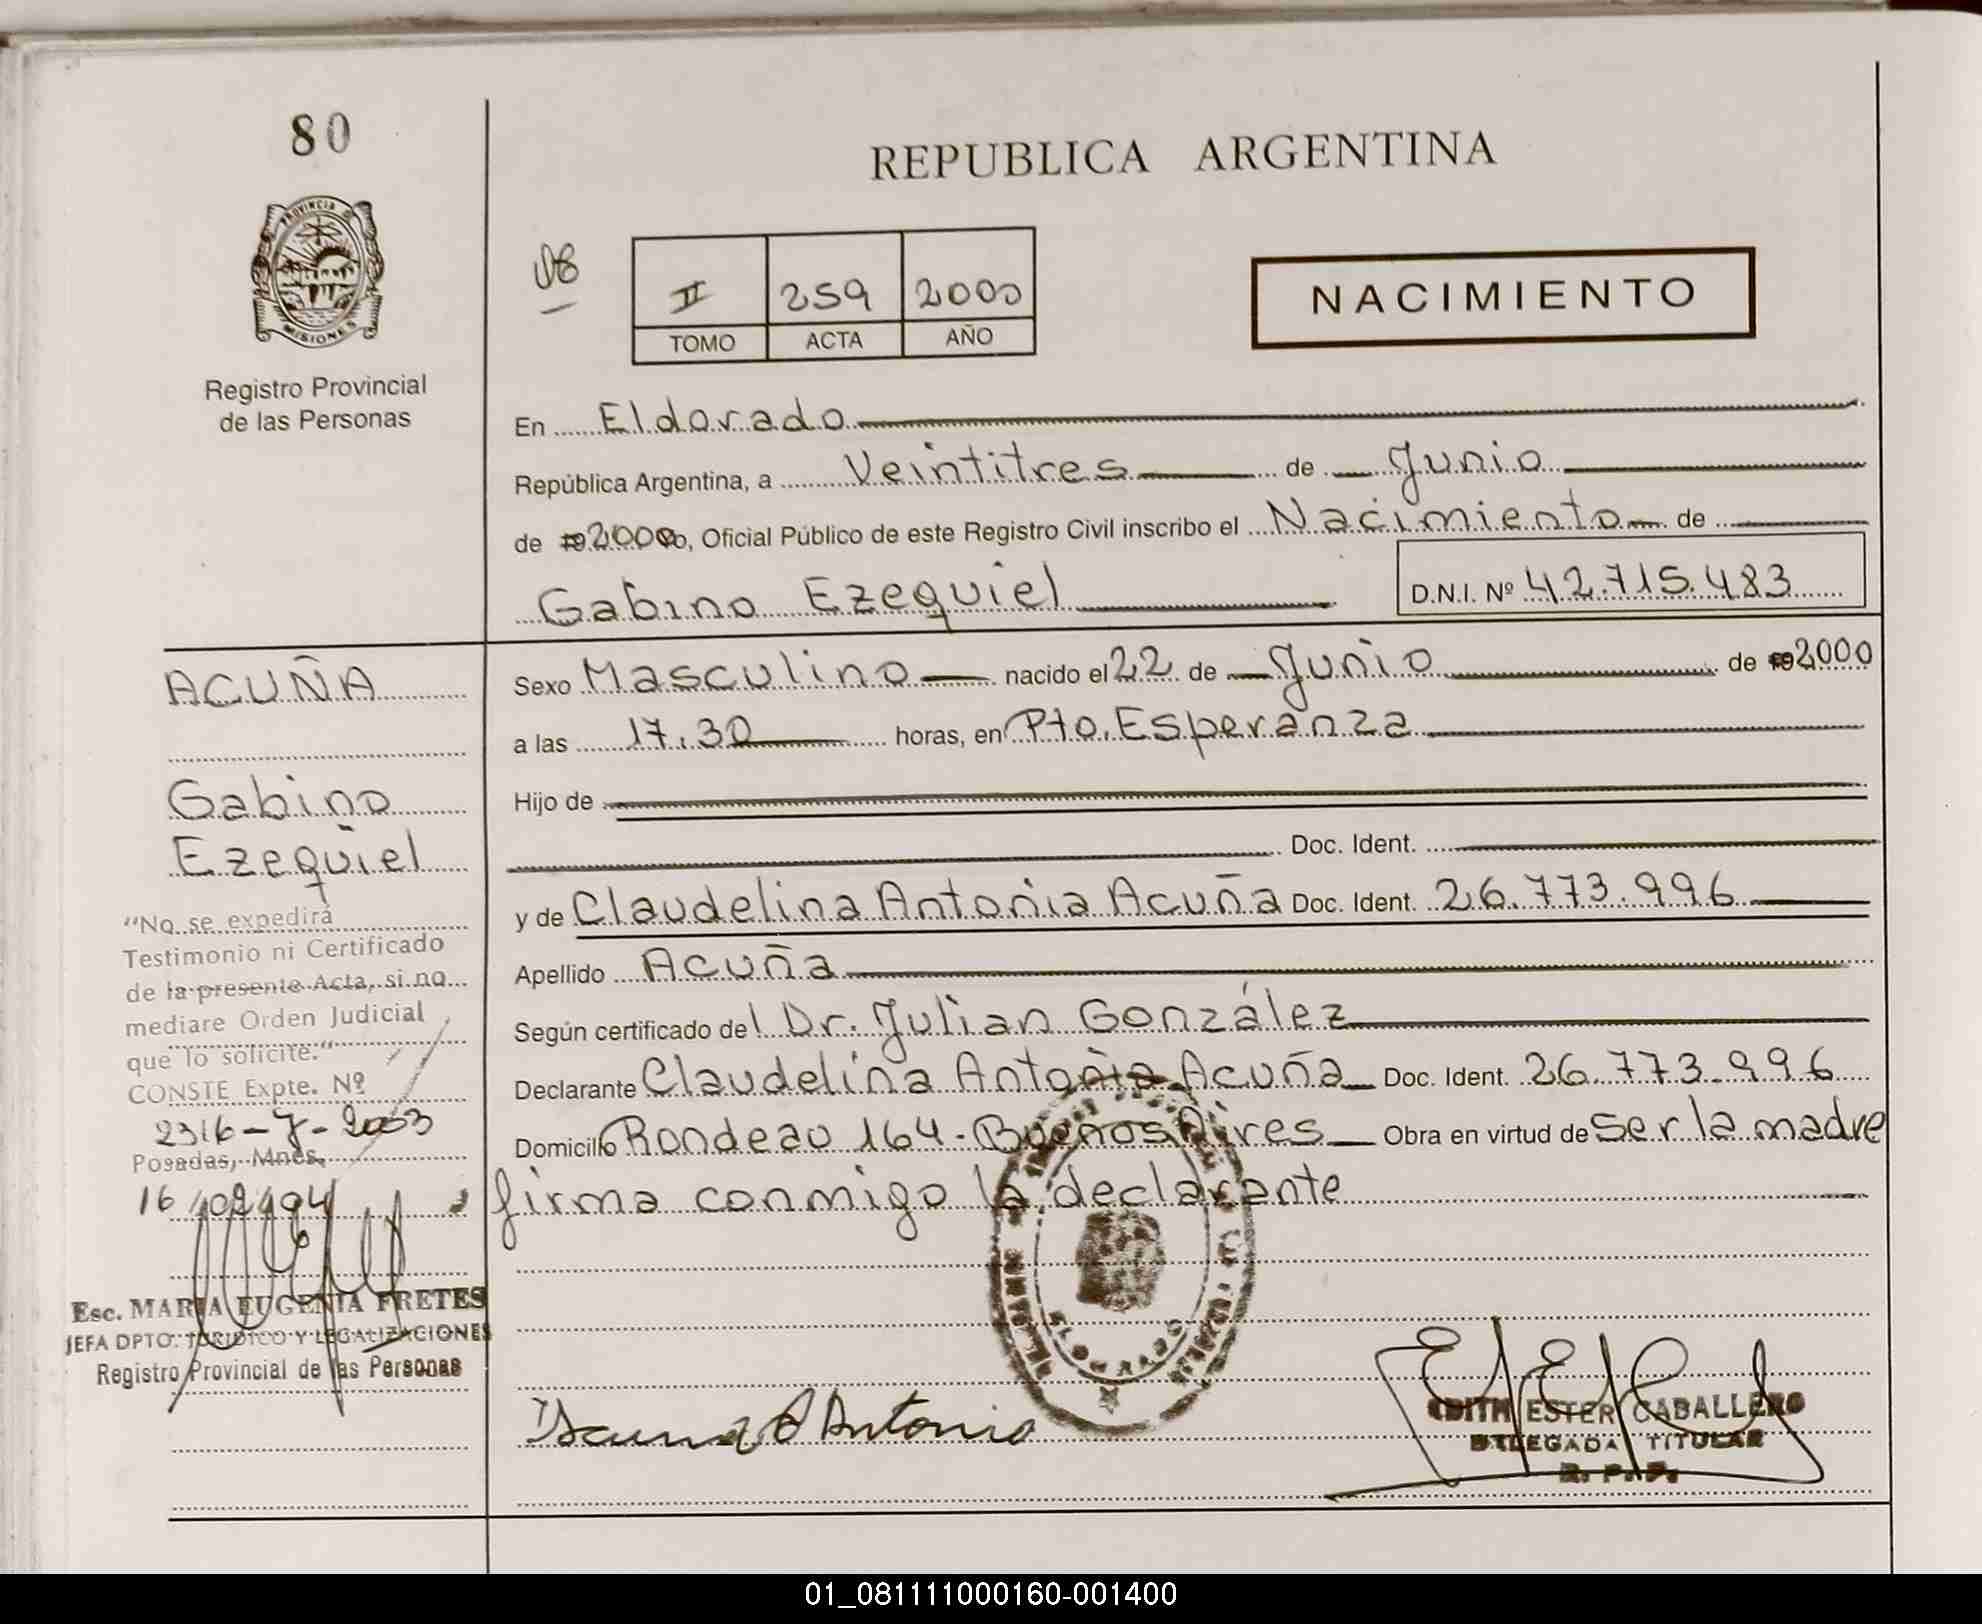 80
PROVINCIA DE
MISIONES
Registro Provincial
de las Personas
REPUBLICA ARGENTINA
II 259 2000
TOMO ACTA AÑO
NACIMIENTO
En Eldorado
República Argentina, a Veintitres de Junio
de 2000, Oficial Público de este Registro Civil inscribo el Nacimiento de
Gabino Ezequiel D.N.I. Nº 42.715.483
ACUÑA
Gabino
Ezequiel
"No se expedirá
Testimonio ni Certificado
de la presente Acta, si no
mediare Orden Judicial
que lo solicite."
CONSTE Expte. Nº
2316-J-2003
Posadas, Mnes,
16/02/04
Esc. MARIA EUGENIA FRETES
JEFA DPTO. JURIDICO Y LEGALIZACIONES
Registro Provincial de las Personas
Sexo Masculino nacido el 22 de Junio de 2000
a las 17.30 horas, en Pto. Esperanza
Hijo de
Doc. Ident.
y de Claudelina Antonia Acuña Doc. Ident. 26.773.996
Apellido Acuña
Según certificado del Dr. Julian González
Declarante Claudelina Antonia Acuña Doc. Ident. 26.773.996
Domicilio Rondeau 164 - Buenos Aires Obra en virtud de ser la madre
firma conmigo la declarante
ELDORADO
Acuna C Antonia
EDITH ESTER CABALLERO
DELEGADA TITULAR
R. P. P.
01_081111000160-001400